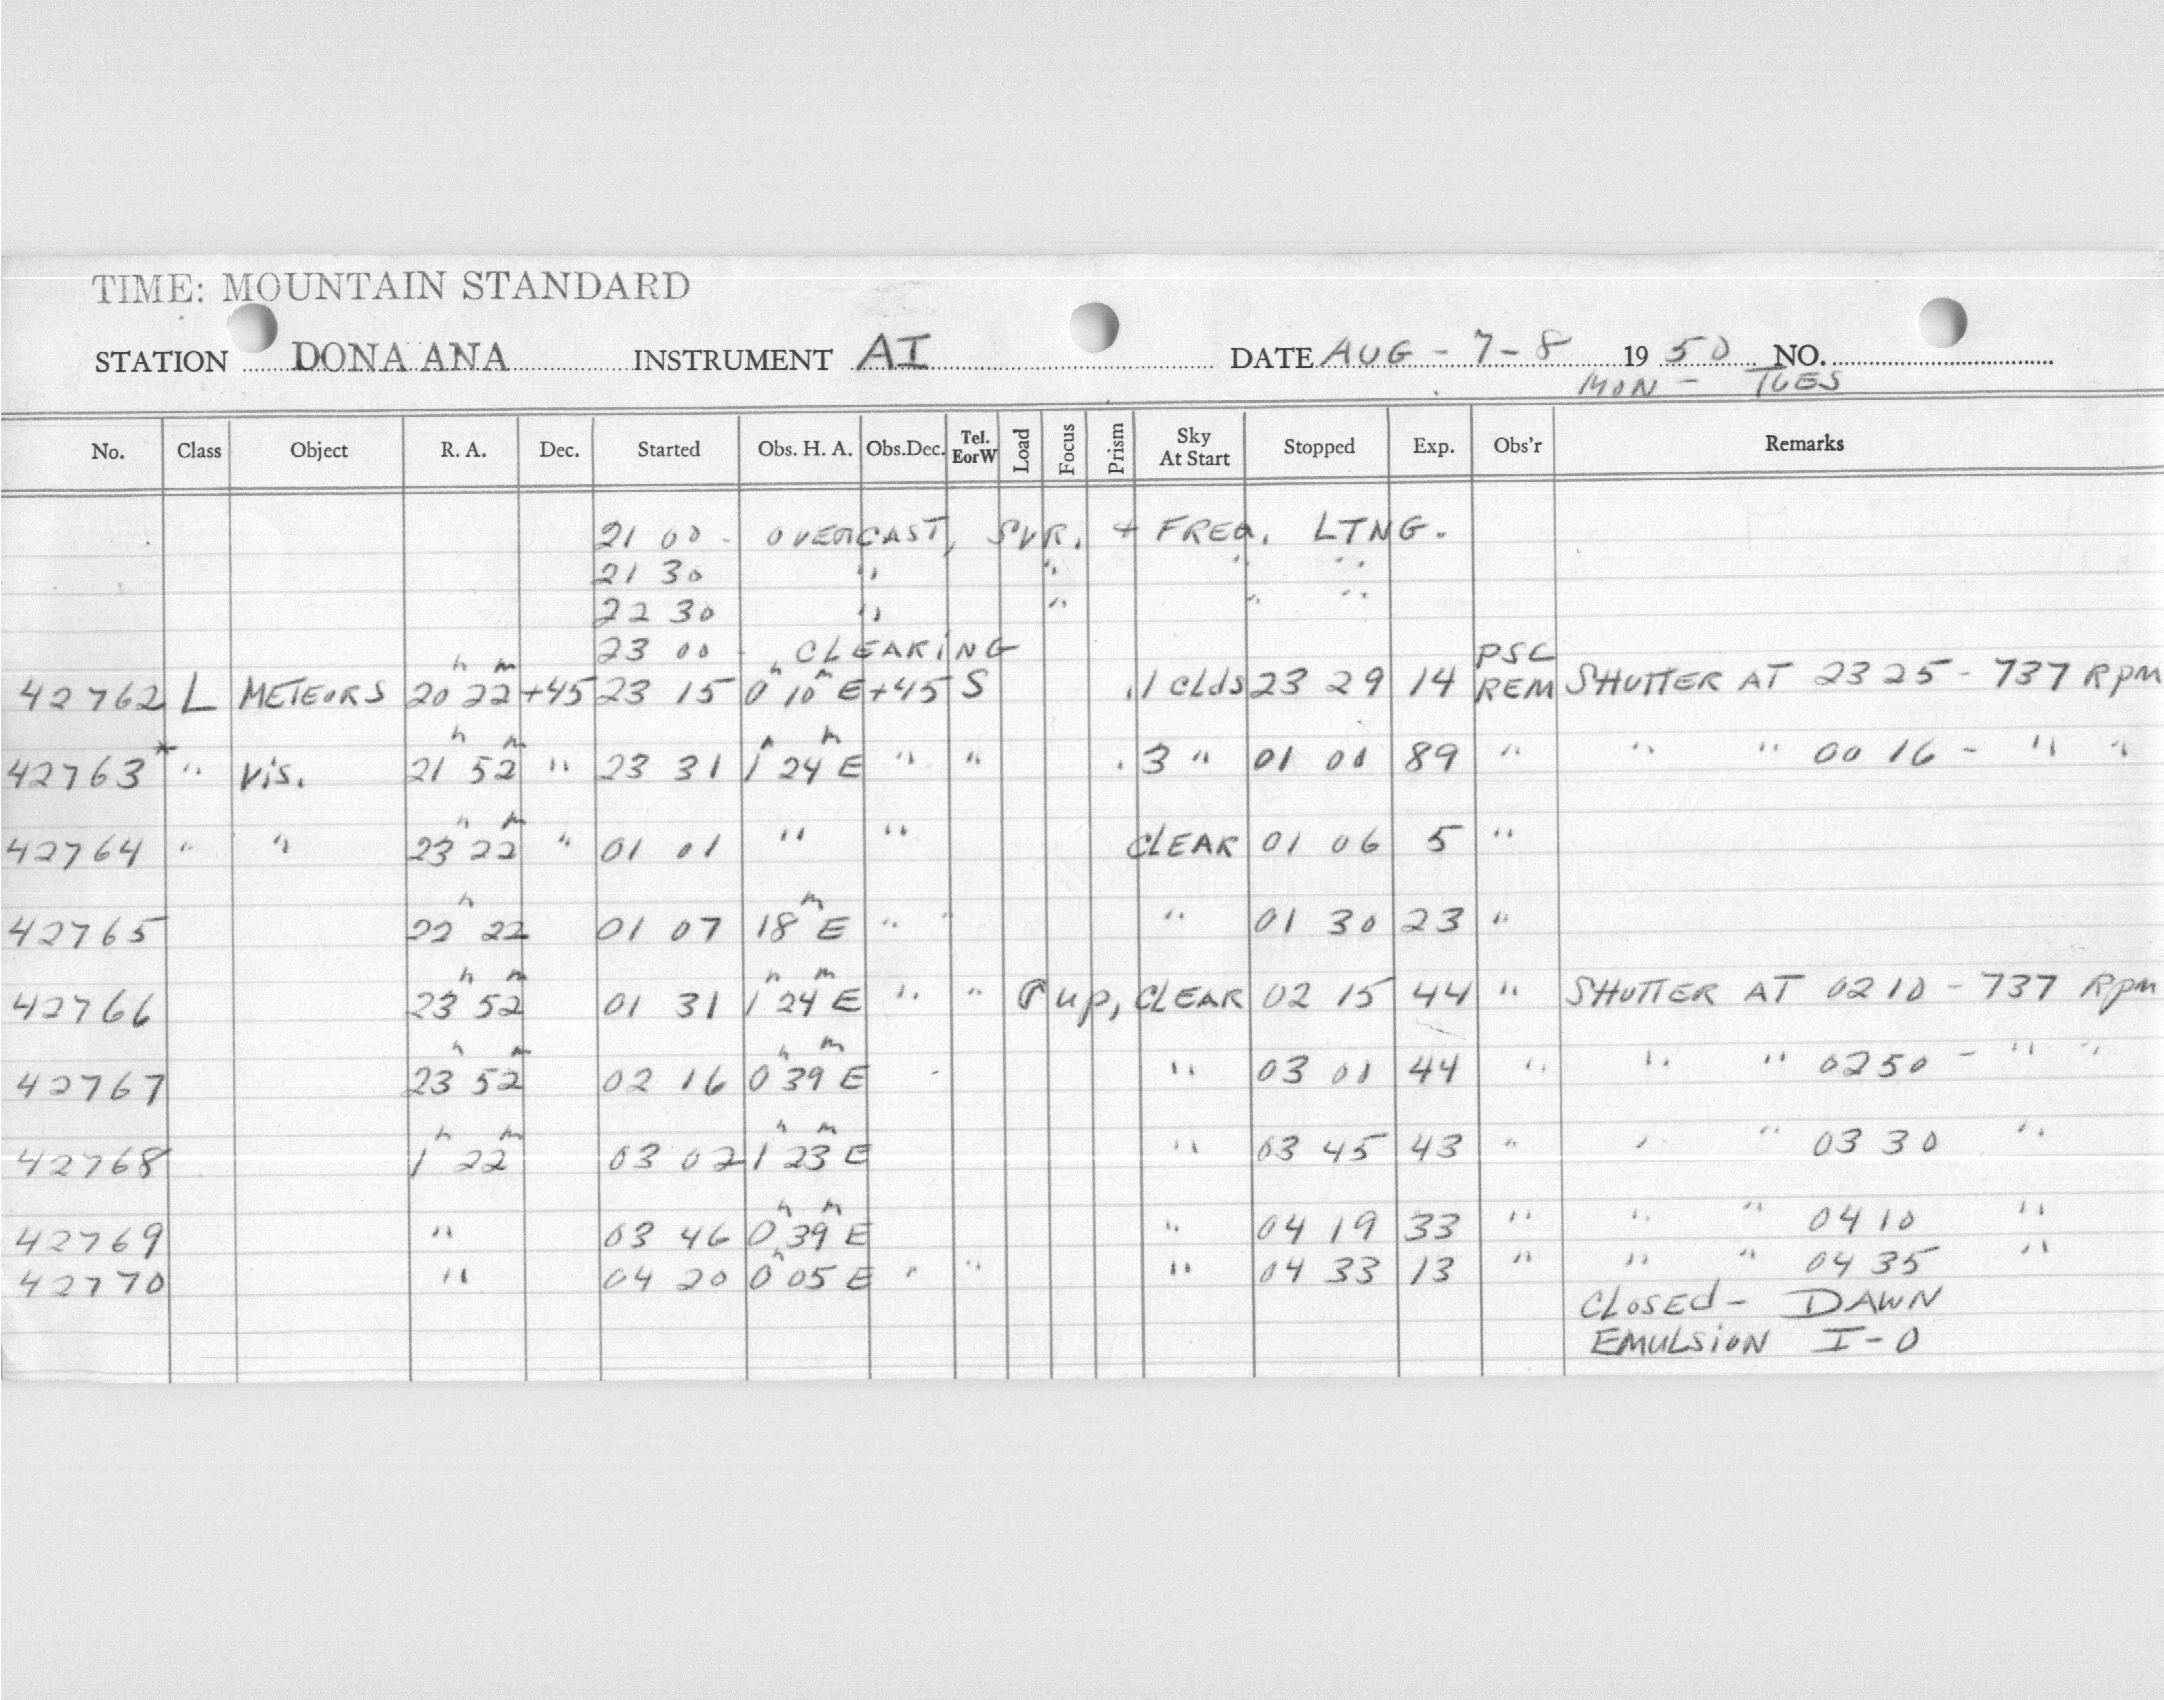 TIME: MOUNTAIN STANDARD
STATION DONA ANA INSTRUMENT AI DATE AUG - 7-8 1950 NO.
MON - TUES
No. Class Object R. A. Dec. Started Obs. H. A. Obs.Dec. Tel. EorW Load Focus Prism Sky At Start Stopped Exp. Obs'r Remarks
21 00 - OVERCAST, SVR. + FREQ. LTNG.
21 30 " " " "
22 30 " " " "
23 00 - CLEARING
42762 L METEORS 20h 22m +45 23 15 0h 10m E +45 S .1 clds 23 29 14 PSC REM SHUTTER AT 23 25 - 737 RPM
42763* " vis. 21h 52m " 23 31 1h 24m E " " .3 " 01 00 89 " " " 00 16 - " "
42764 " " 23h 22m " 01 01 " " CLEAR 01 06 5 "
42765 22h 22 01 07 18m E " " " 01 30 23 "
42766 23h 52m 01 31 1h 24m E " " up, CLEAR 02 15 44 " SHUTTER AT 02 10 - 737 RPM
42767 23h 52m 02 16 0h 39m E " 03 01 44 " " " 02 50 - " "
42768 1h 22m 03 02 1h 23m E " 03 45 43 " " " 03 30 "
42769 " 03 46 0h 39m E " 04 19 33 " " " 04 10 "
42770 " 04 20 0h 05 E " " " 04 33 13 " " " 04 35 "
CLOSED - DAWN
EMULSION I-O